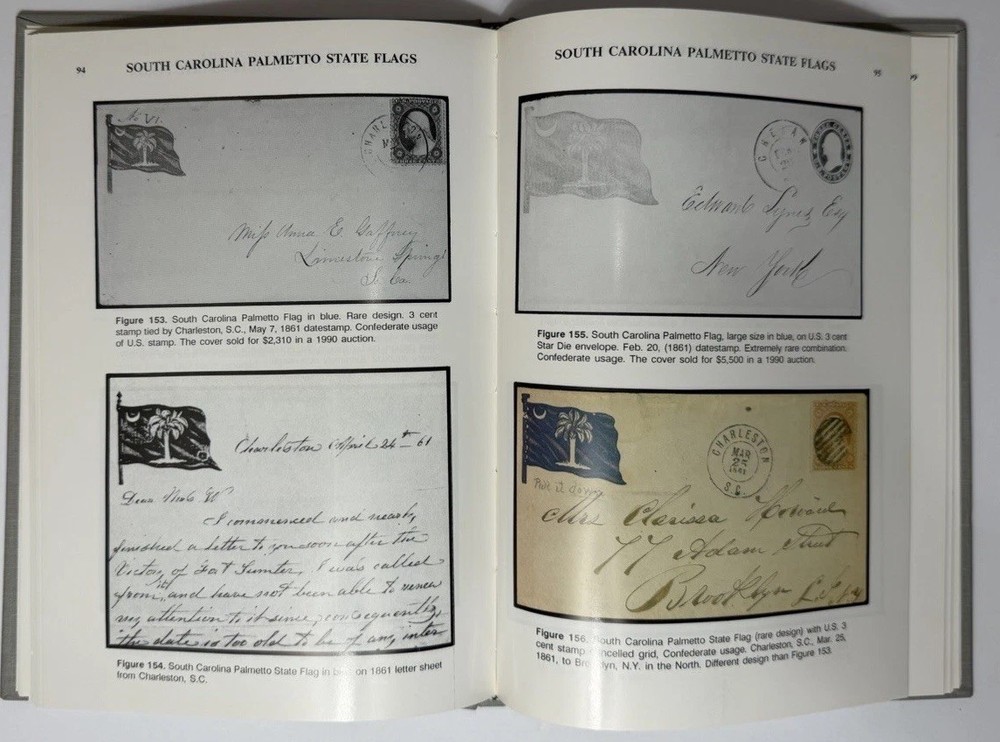 94 SOUTH CAROLINA PALMETTO STATE FLAGS
No VI.
CHARLESTON
U.S. POSTAGE
Miss Anna E. Gaffney
Limestone Springs
S. Ca.
Figure 153. South Carolina Palmetto Flag in blue. Rare design. 3 cent
stamp tied by Charleston, S.C., May 7, 1861 datestamp. Confederate usage
of U.S. stamp. The cover sold for $2,310 in a 1990 auction.
Charleston April 24th 61
Dear Mrs W
I commenced and nearly
finished a letter to you soon after the
Victory of Fort Sumter, I was called
from it, and have not been able to renew
my attention to it since, consequently
the date is too old to be of any inter
Figure 154. South Carolina Palmetto State Flag in on 1861 letter sheet
from Charleston, S.C.
SOUTH CAROLINA PALMETTO STATE FLAGS 95
99
CHERAW
THREE CENTS
U.S. POSTAGE
Edward Esq
New York
Figure 155. South Carolina Palmetto Flag, large size in blue, on U.S. 3 cent
Star Die envelope. Feb. 20, (1861) datestamp. Extremely rare combination.
Confederate usage. The cover sold for $5,500 in a 1990 auction.
CHARLESTON
MAR
25
1861
S.C.
Put it down
Mrs Clarissa Howard
77 Adam Street
Brooklyn
Figure 156. South Carolina Palmetto State Flag (rare design) with U.S. 3
cent stamp cancelled grid, Confederate usage. Charleston, S.C., Mar. 25,
1861, to Brooklyn, N.Y. in the North. Different design than Figure 153.